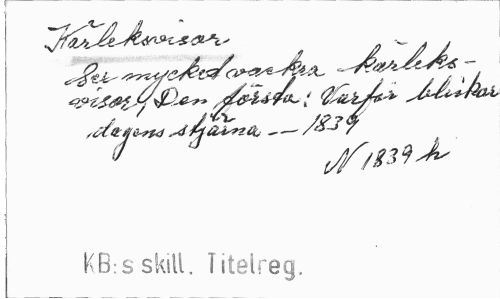 Kärleksvisor
Sex mycket vackra kärleks-
visor, Den första: Varför blickar
dagens stjärna — 1839
N 1839 h
KB:s skill. Titelreg.